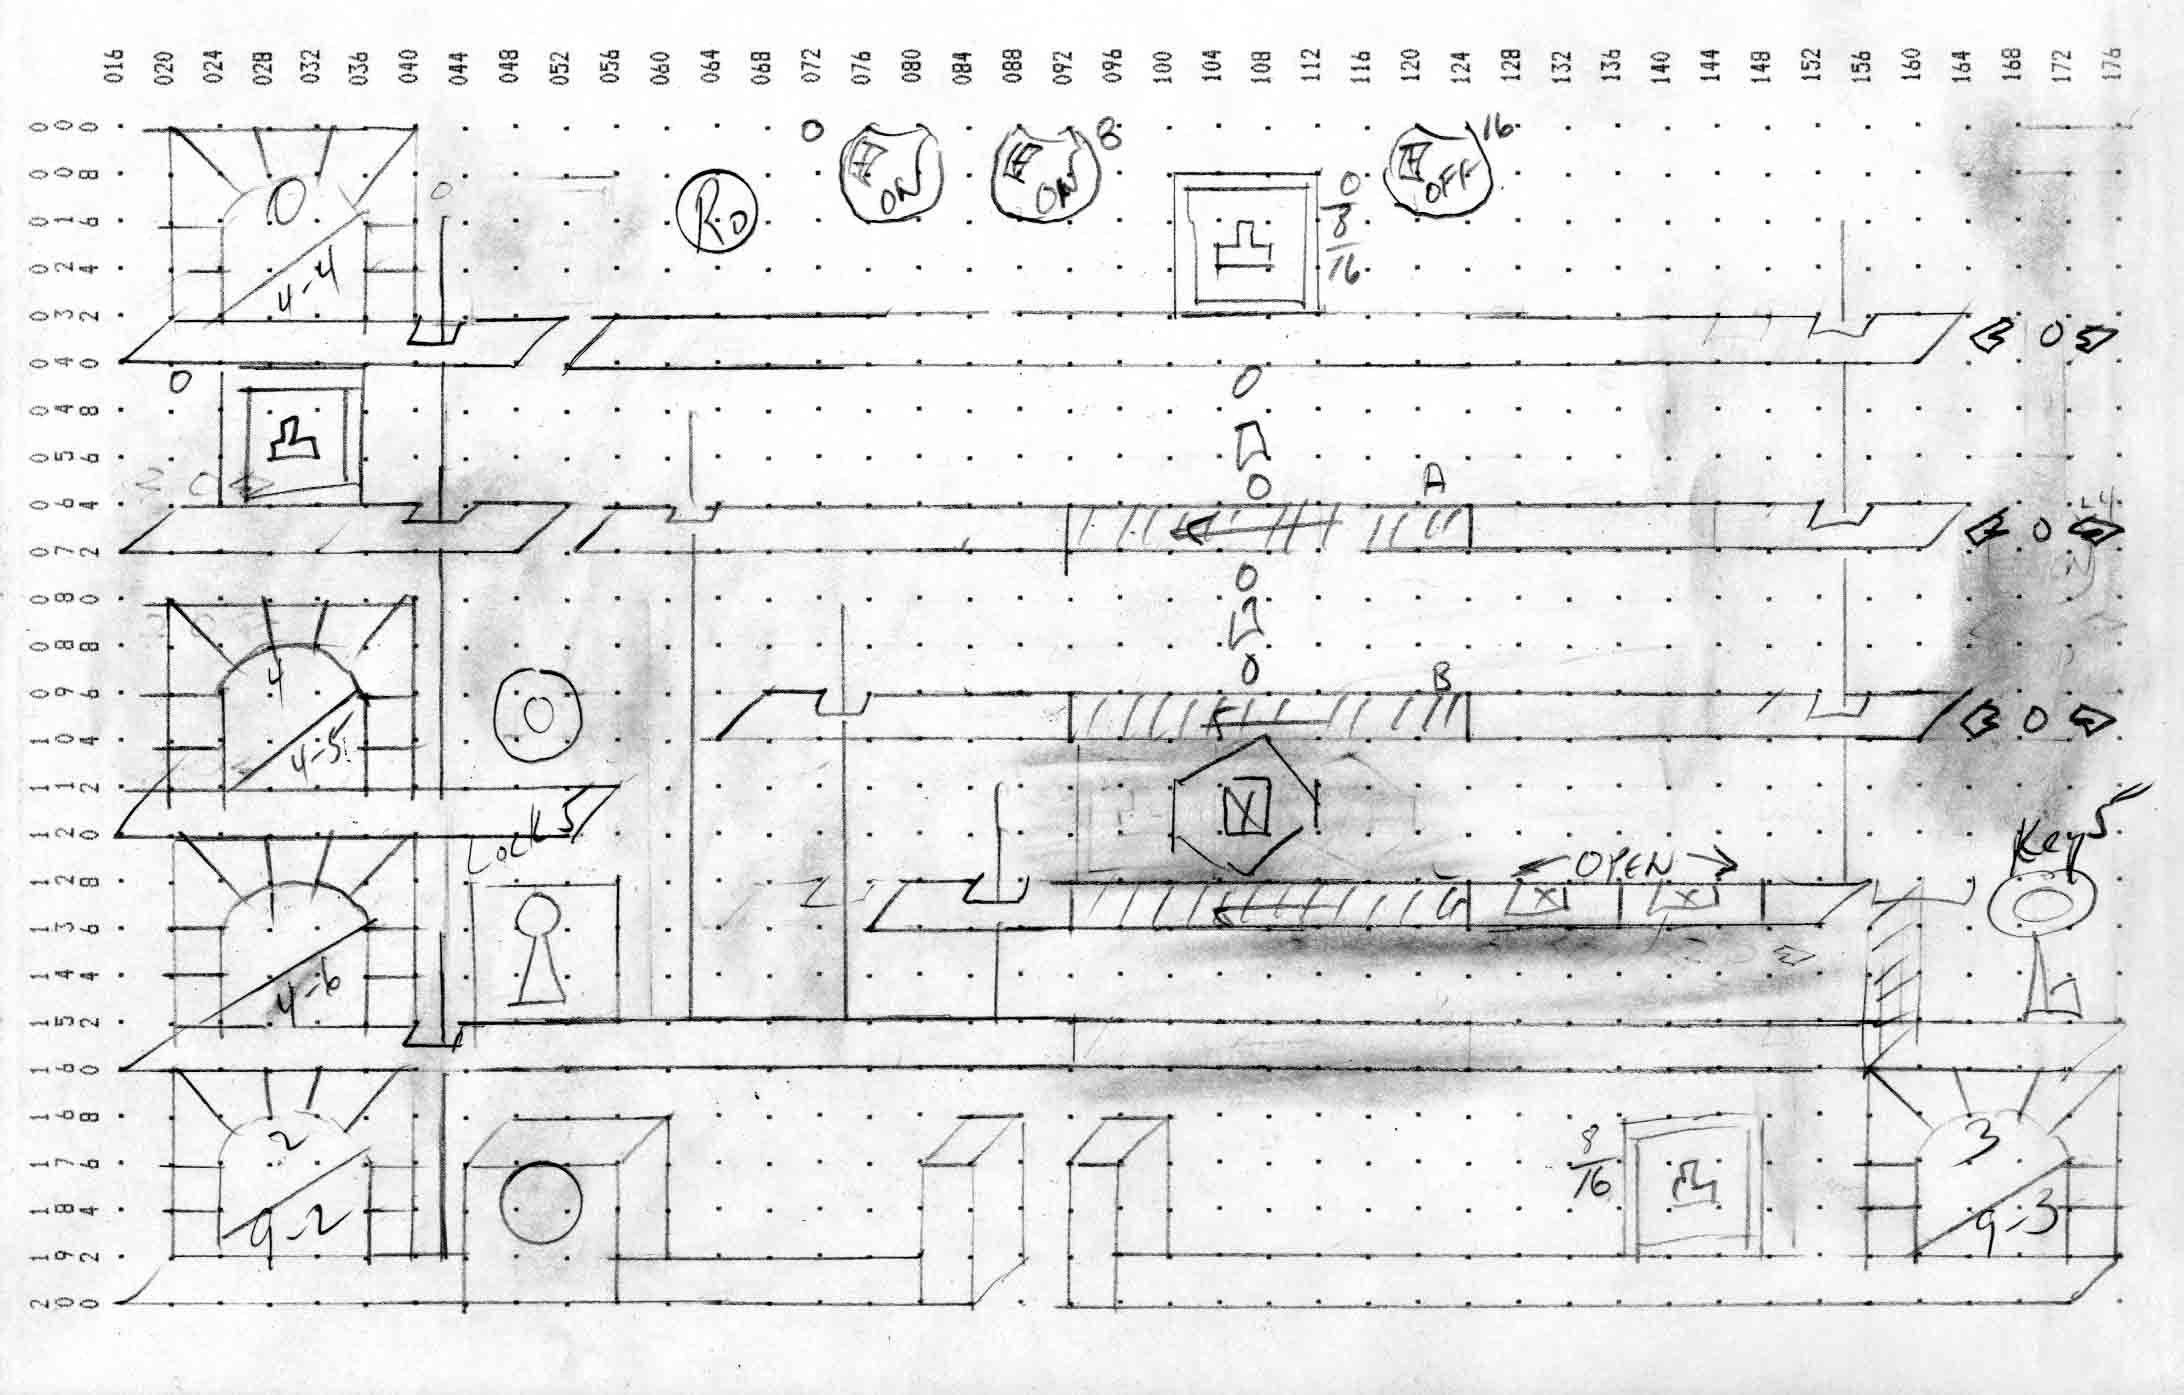 016 020 024 028 032 036 040 044 048 052 056 060 064 068 072 076 080 084 088 092 096 100 104 108 112 116 120 124 128 132 136 140 144 148 152 156 160 164 168 172 176
000
008
016
024
032
040
048
056
064
072
080
088
096
104
112
120
128
136
144
152
160
168
176
184
192
200
0 ON ON 8 OFF 16
0
4-4
0
R0
0
8
16
0
0
0
0 A
0
0
0 B
0
4
4-5
LOCK 5
X
Key 5
← OPEN →
C X X
4-6
2
9-2
8
16
3
9-3